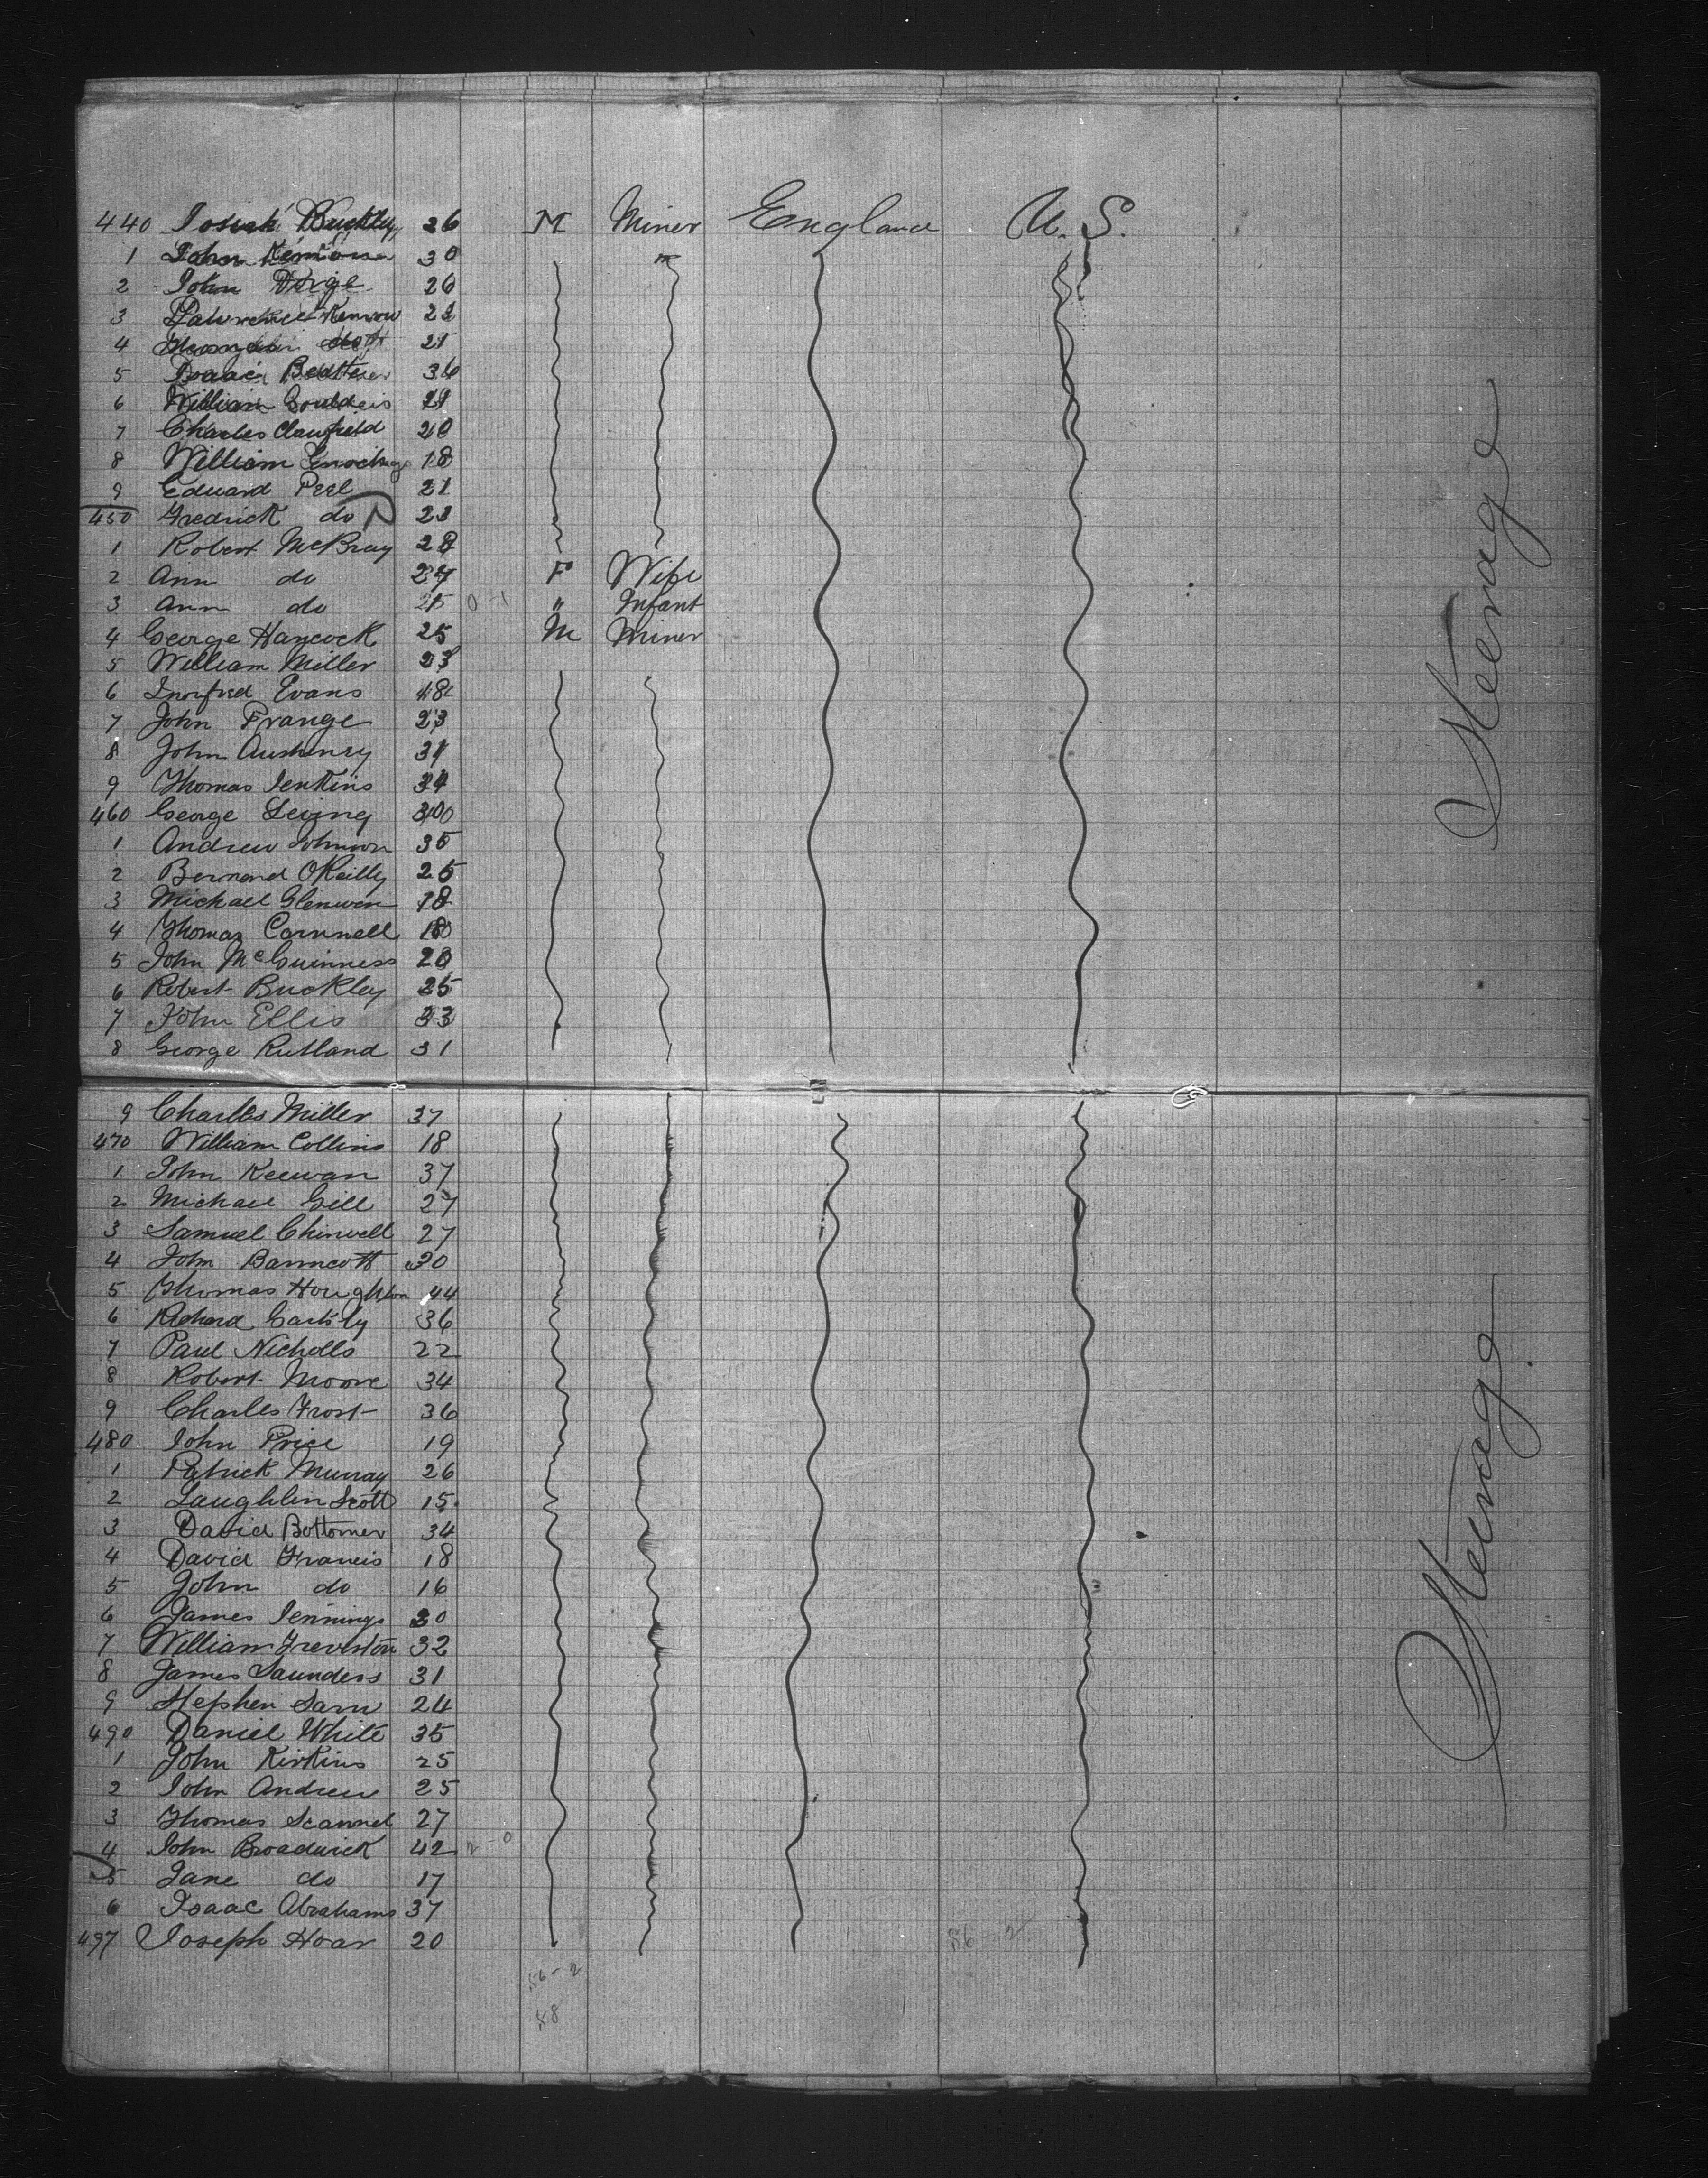 440 Josiah Buckley 26 M Miner England U. S.
1 John 30
2 John Dirge 26
3 Lawrence
4
5 Isaac 36
6 William
7 Charles Clawfield 20
8 William 18
9 Edward Peel 21
450 Fredrick do 23
1 Robert McBray 28
2 Ann do F Wife
3 Ann do 0-1 " Infant
4 George Hancock 25 M Miner
5 William Miller 23
6 Evans 48
7 John Prange 23
8 John 31
9 Thomas Jenkins 34
460 George Leving
1 Andrew Johnson 35
2 Bernard OReilly 25
3 Michael Glenwen 18
4 Thomas Cornnell 18
5 John McGuinness 20
6 Robert Buckley 25
7 John Ellis 33
8 George Rutland 31
Steerage
9 Charles Miller 37
470 William Collins 18
1 John Keewan 37
2 Michael Gill 27
3 Samuel Chinwell 27
4 John Banncott 30
5 Thomas Houghton 44
6 Richard 36
7 Paul Nicholls 22
8 Robert Moore 34
9 Charles Frost 36
480 John Price 19
1 Patrick Murray 26
2 Laughlin Scott 15
3 David Bottomer 34
4 David Francis 18
5 John do 16
6 James Jennings 20
7 William 32
8 James Saunders 31
9 Stephen Sarn 24
490 Daniel White 35
1 John Kirkins 25
2 John Andrew 25
3 Thomas Scannel 27
4 John Broadwick 42 2-0
5 Jane do 17
6 Isaac Abrahams 37
497 Joseph Hoar 20
56-2
56-2
58